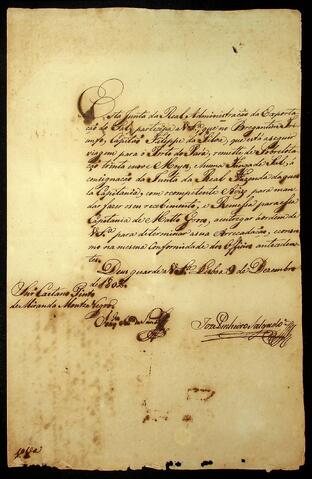 Esta Junta da Real Administração da Exporta
ção do Sal, participa a V. S.ª que no Bergantim
Capitão Felippe da Silva, que está a seguir
viagem para o Porto do Pará, remette
trinta e nove Moyos, e huma de Sal, á
consignação da Junta da Real Fazenda daquel
la Capitania, com competente Avizo para man
dar fazer seu recebimento, e Remessa para essa
Capitania de Matto Grosso, a entregar á ordem de
V. S.ª para determinar a sua Arrecadação, como
na mesma Conformidade dos Officios anteceden
tes.
Deus guarde a V. S.ª Lisboa 9 de Dezembro
de
Snr. Caetano Pinto
de Miranda Montenegro
José Pinheiro Salgado